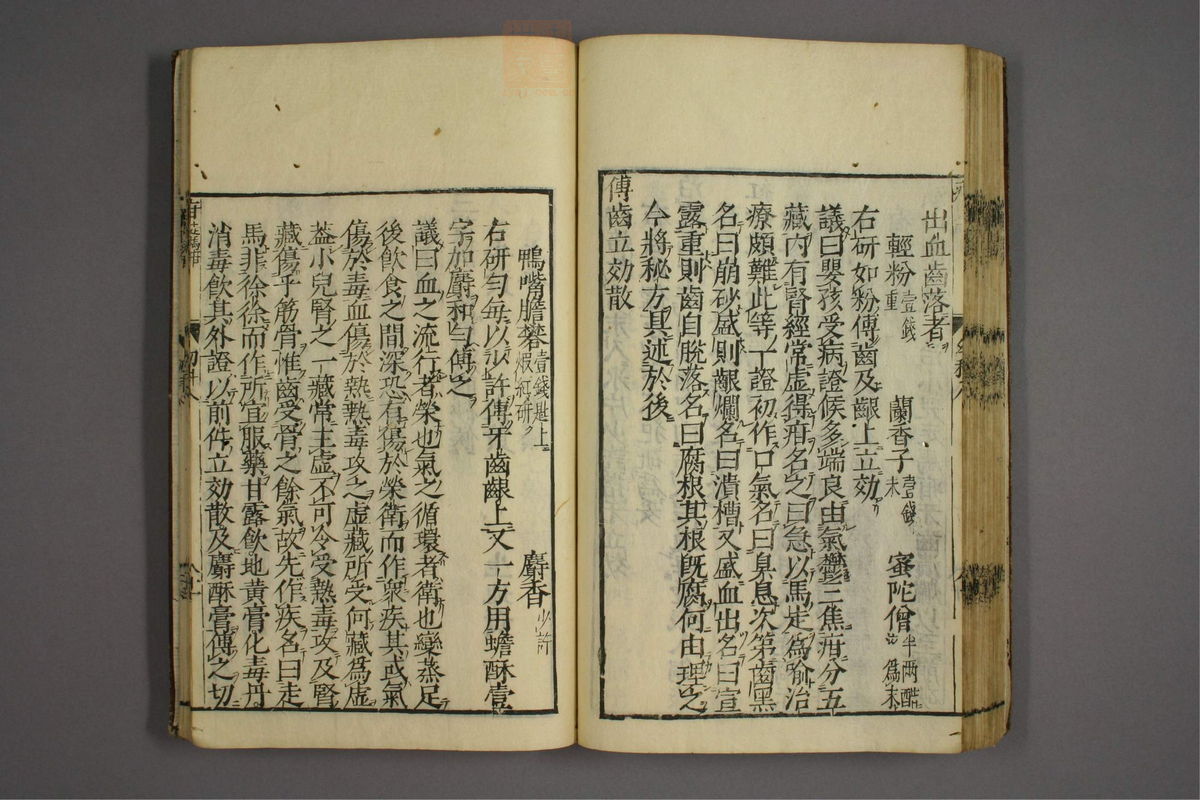 出血齒落者
輕粉壹錢重 蘭香子壹錢末 蜜陀僧半兩醋為末
右研如粉傅齒及齦上立効
議曰嬰孩受病證候多端良由氣鬱三焦疳分五
藏内有腎經常虚得疳名之曰急以馬走為喻治
療頗難此等丁證初作口氣名曰臭息次第齒黑
名曰崩砂盛則齦爛名曰潰槽又盛血出名曰宣
露重則齒自脱落名曰腐根其根既腐何由理之
今將秘方具述於後
傅齒立効散
鴨嘴膽礬壹錢匙上煅紅研 麝香少許
右研勻每以少許傅牙齒齦上又一方用蟾酥壹
字加麝和勻傅之
議曰血之流行者榮也氣之循環者衛也變蒸足
後飲食之間深恐有傷於榮衛而作衆疾其或氣
傷於毒血傷於熱熱毒攻之虚藏所受何藏為虚
蓋小兒腎之一藏常主虚不可令受熱毒攻及腎
藏傷乎筋骨惟齒受骨之餘氣故先作疾名曰走
馬非徐徐而作所宜服藥甘露飲地黄膏化毒丹
消毒飲其外證以前件立効散及麝酥膏傅之切